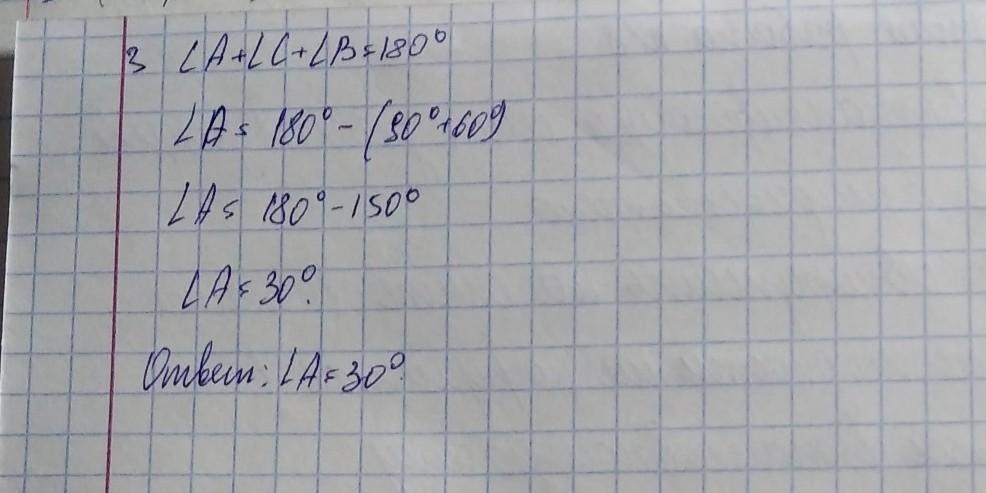 3 ∠A+∠C+∠B=180°
∠A= 180°-(90°+60°)
∠A= 180°-150°
∠A=30°.
Ответ: ∠A=30°.